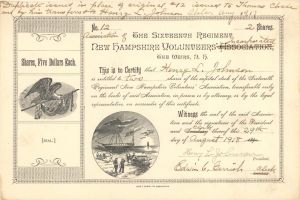 Duplicate issued in place of original #12 issued to Thomas
and by him transferred to Henry L. Johnson
No. 12
2 Shares
Association of THE SIXTEENTH REGIMENT
NEW HAMPSHIRE VOLUNTEERS ASSOCIATION,
THE WEIRS, N. H.
Shares, Five Dollars Each.
This is to Certify that Henry L. Johnson
is entitled to two shares of the capital stock of the Sixteenth
Regiment New Hampshire Volunteers' Association, transferable only
on the books of said Association, in person or by attorney, or by legal
representative, on surrender of this certificate.
Witness the seal of the said Association
and the signatures of the President
and thereof the 29th
day of August 1908
Henry L. Johnson
President.
Edwin C. Gerrish
[SEAL.]